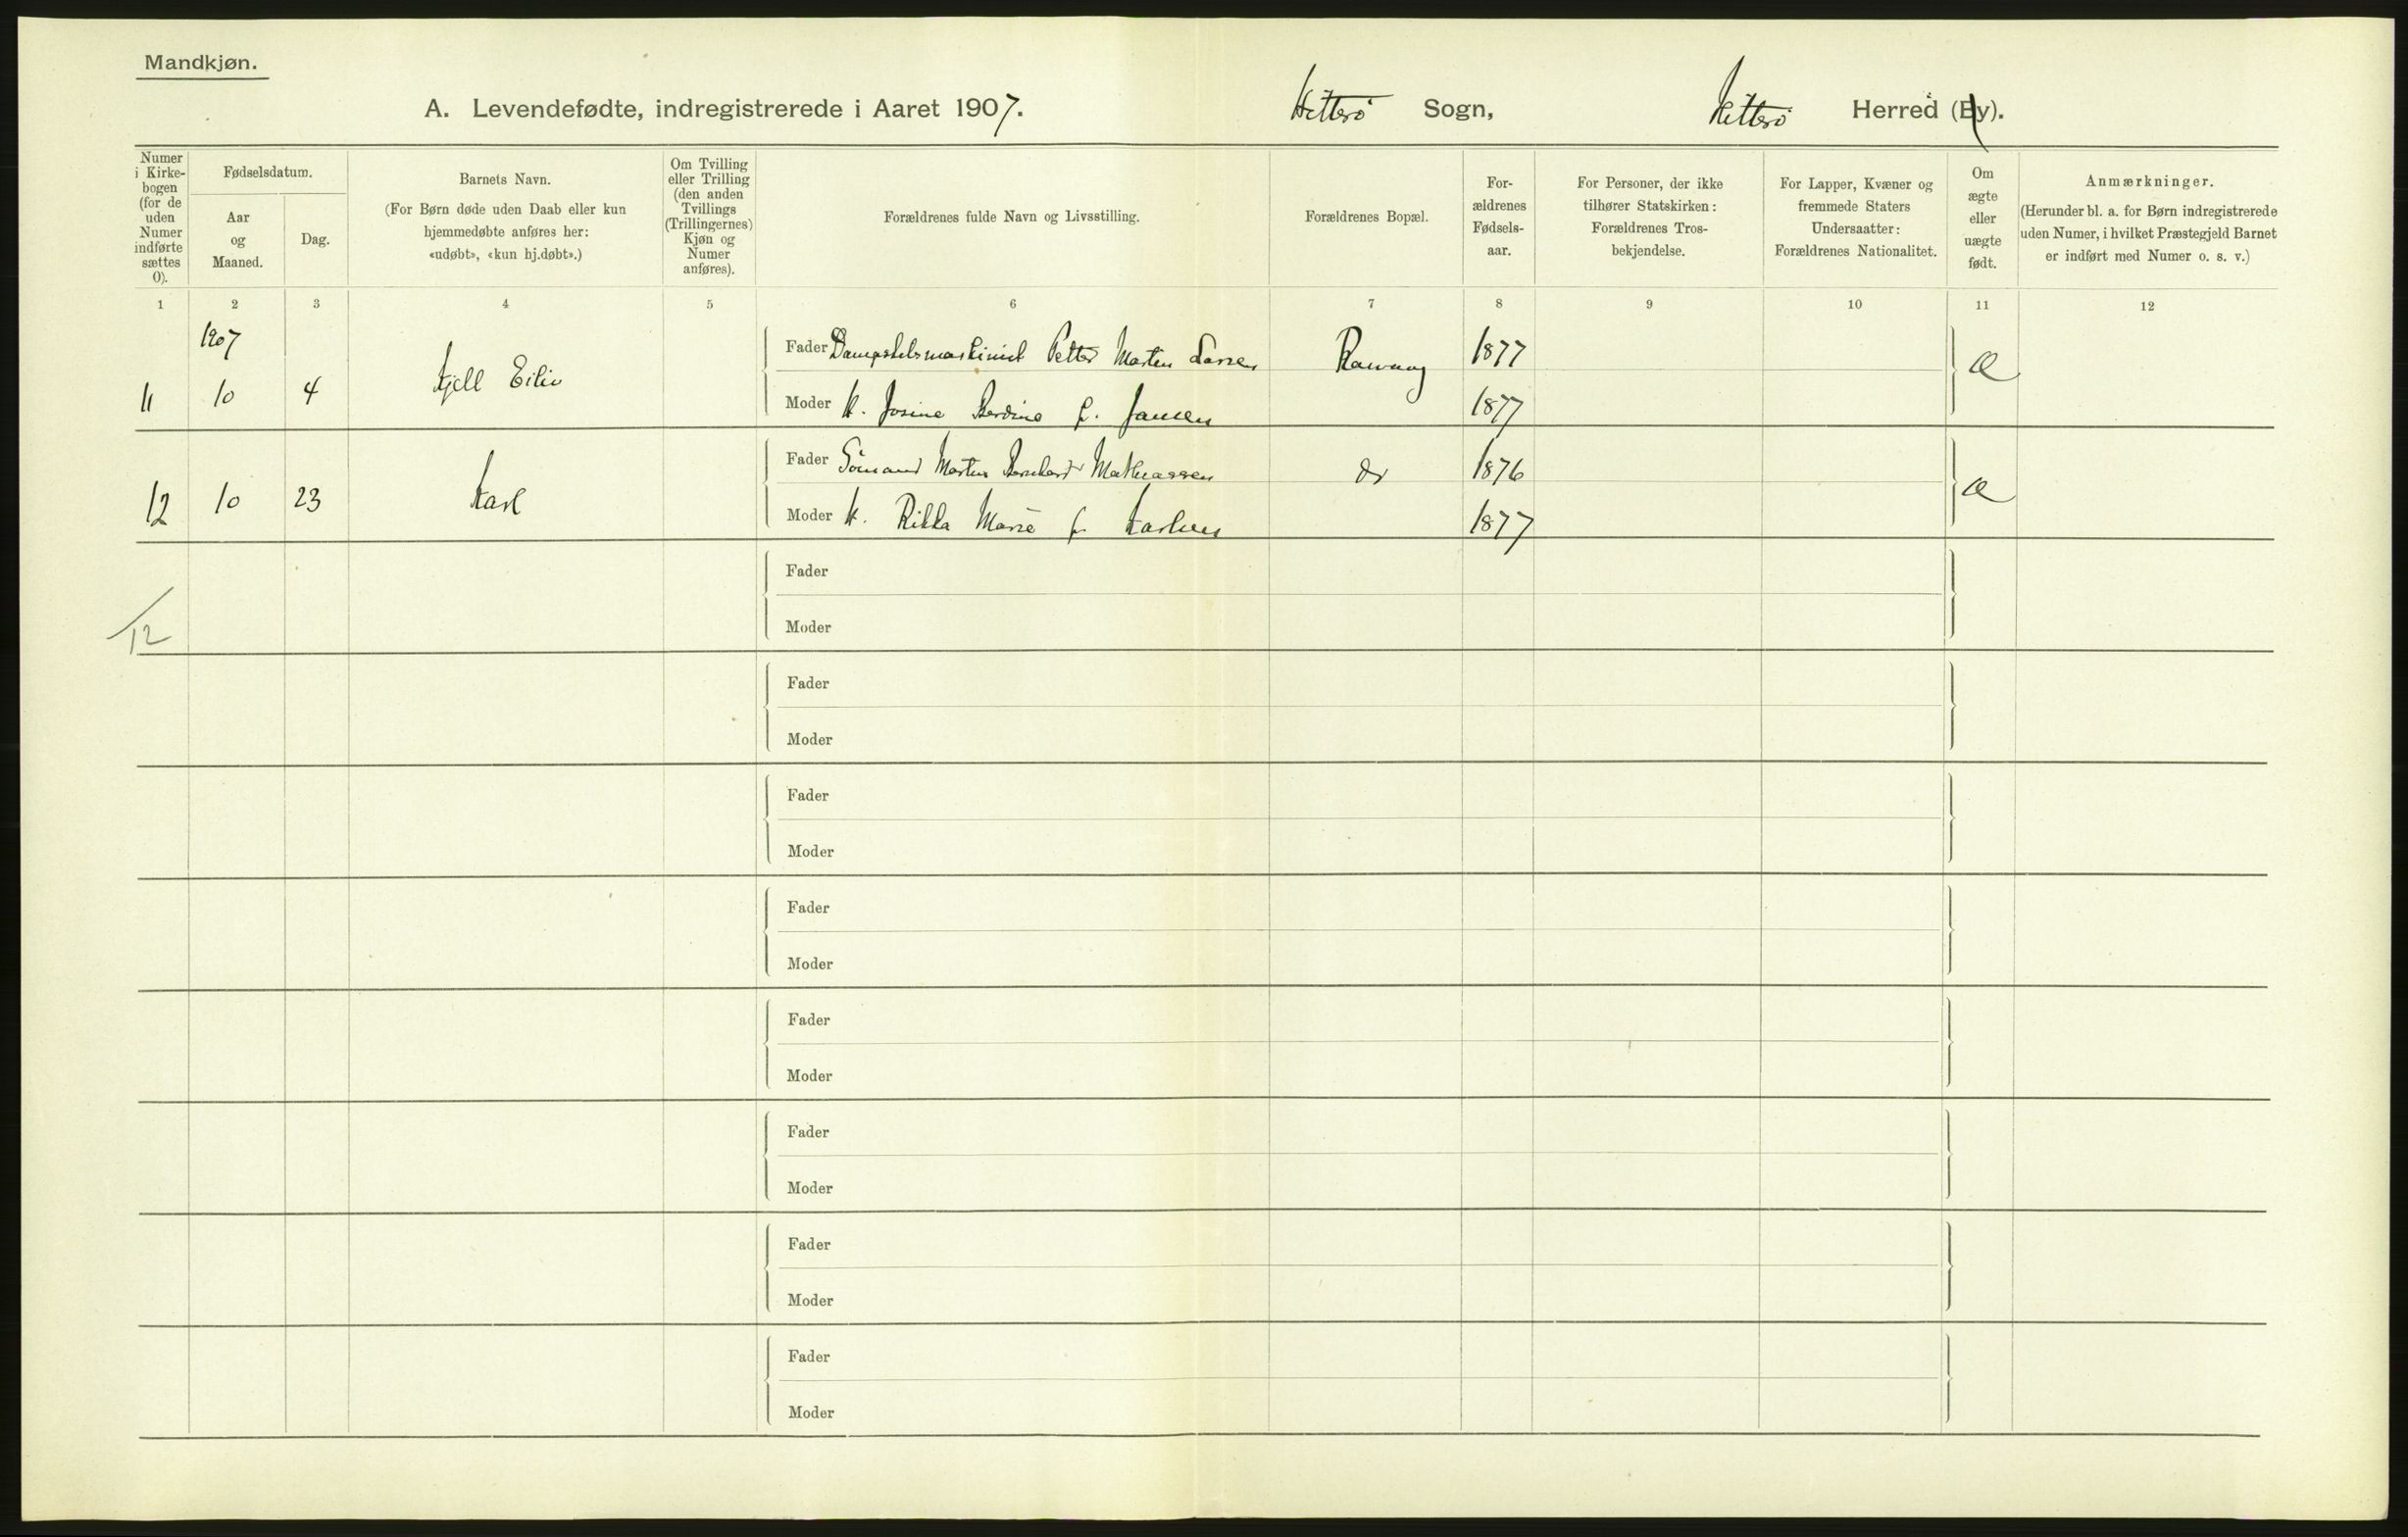 Mandkjøn.
A. Levendefødte, indregistrerede i Aaret 1907. Hitterö Sogn, Hitterö Herred (By).
Numer i Kirke-bogen (for de uden Numer indførte sættes 0).
Fødselsdatum.
Aar og Maaned.
Dag.
Barnets Navn.
(For Børn døde uden Daab eller kun
hjemmedøbte anføres her:
«udøbt», «kun hj.døbt».)
Om Tvilling
eller Trilling
(den anden
Tvillings
(Trillingernes)
Kjøn og
Numer
anføres).
Forældrenes fulde Navn og Livsstilling.
Forældrenes Bopæl.
For-
ældrenes
Fødsels-
aar.
For Personer, der ikke
tilhører Statskirken:
Forældrenes Tros-
bekjendelse.
For Lapper, Kvæner og
fremmede Staters
Undersaatter:
Forældrenes Nationalitet.
Om
ægte
eller
uægte
født.
Anmærkninger.
(Herunder bl. a. for Børn indregistrerede
uden Numer, i hvilket Præstegjeld Barnet
er indført med Numer o. s. v.)
1 2 3 4 5 6 7 8 9 10 11 12
1907
Fader Dampskibsmaskinist Petter Martin Larsen Rasvaag 1877 æ
11 10 4 Kjell Eiliv
Moder H. Josine Berdine f. Jansen 1877
Fader Sömand Martin Bernhard Mathiassen do 1876 æ
12 10 23 Karl
Moder H. Rikka Marie f. Karlsen 1877
Fader
12
Moder
Fader
Moder
Fader
Moder
Fader
Moder
Fader
Moder
Fader
Moder
Fader
Moder
Fader
Moder